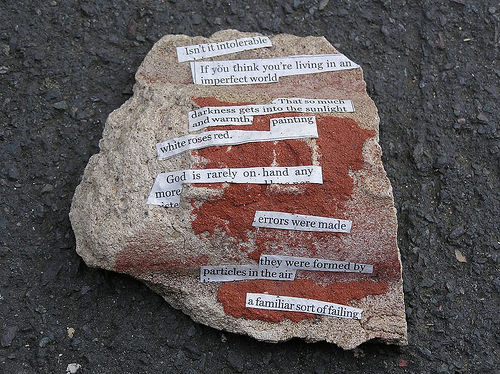 Isn't it intolerable
If you think you're living in an
imperfect world
That so much
darkness gets into the sunlight
and warmth. painting
white roses red.
God is rarely on hand any
more
errors were made
they were formed by
particles in the air
a familiar sort of failing